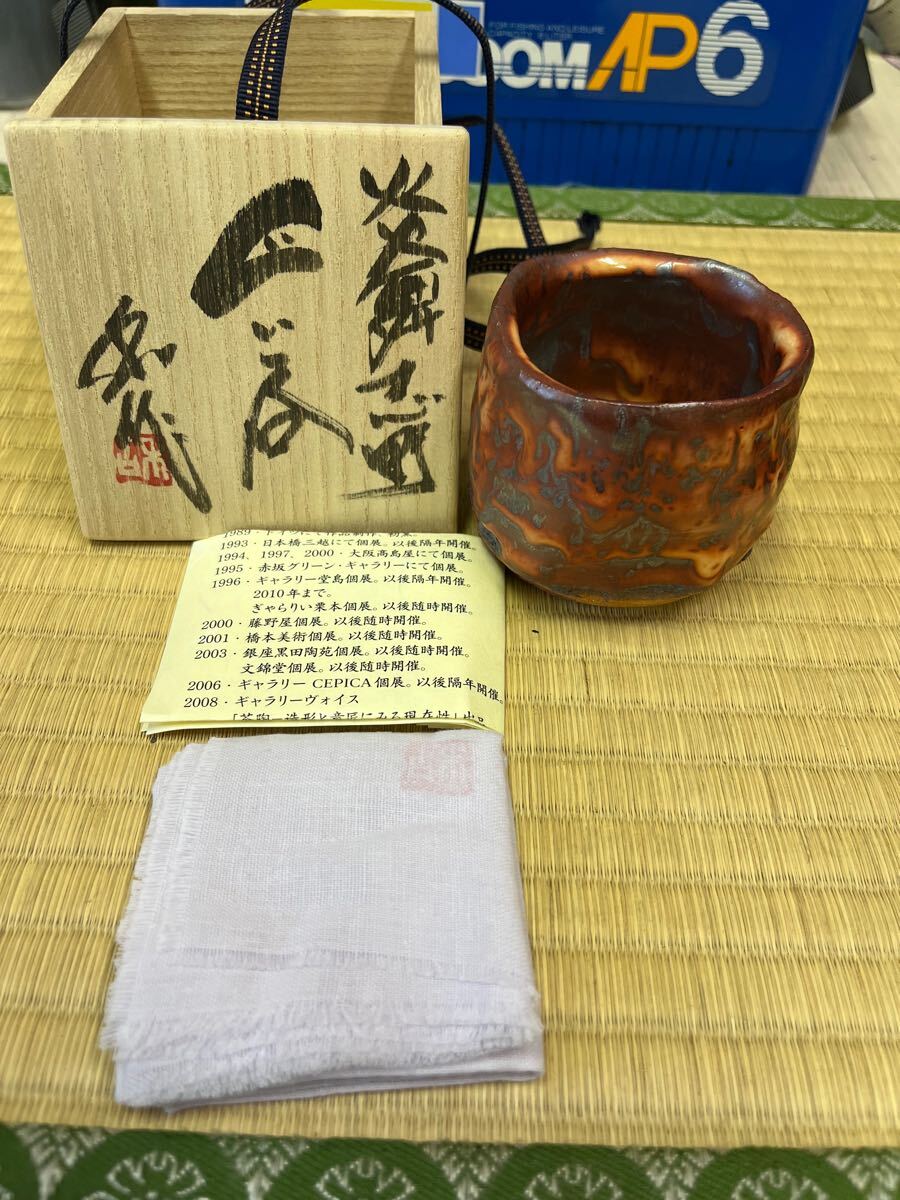 FOR FISHING AND LEISURE
DOM AP6
志野
作
1993・日本橋三越にて個展。以後隔年開催。
1994、1997、2000・大阪高島屋にて個展。
1995・赤坂グリーン・ギャラリーにて個展。
1996・ギャラリー堂島個展。以後隔年開催。
2010年まで。
ぎゃらりい栗本個展。以後随時開催。
2000・藤野屋個展。以後随時開催。
2001・橋本美術個展。以後随時開催。
2003・銀座黒田陶苑個展。以後随時開催。
文錦堂個展。以後随時開催。
2006・ギャラリー CEPICA個展。以後隔年開催。
2008・ギャラリーヴォイス